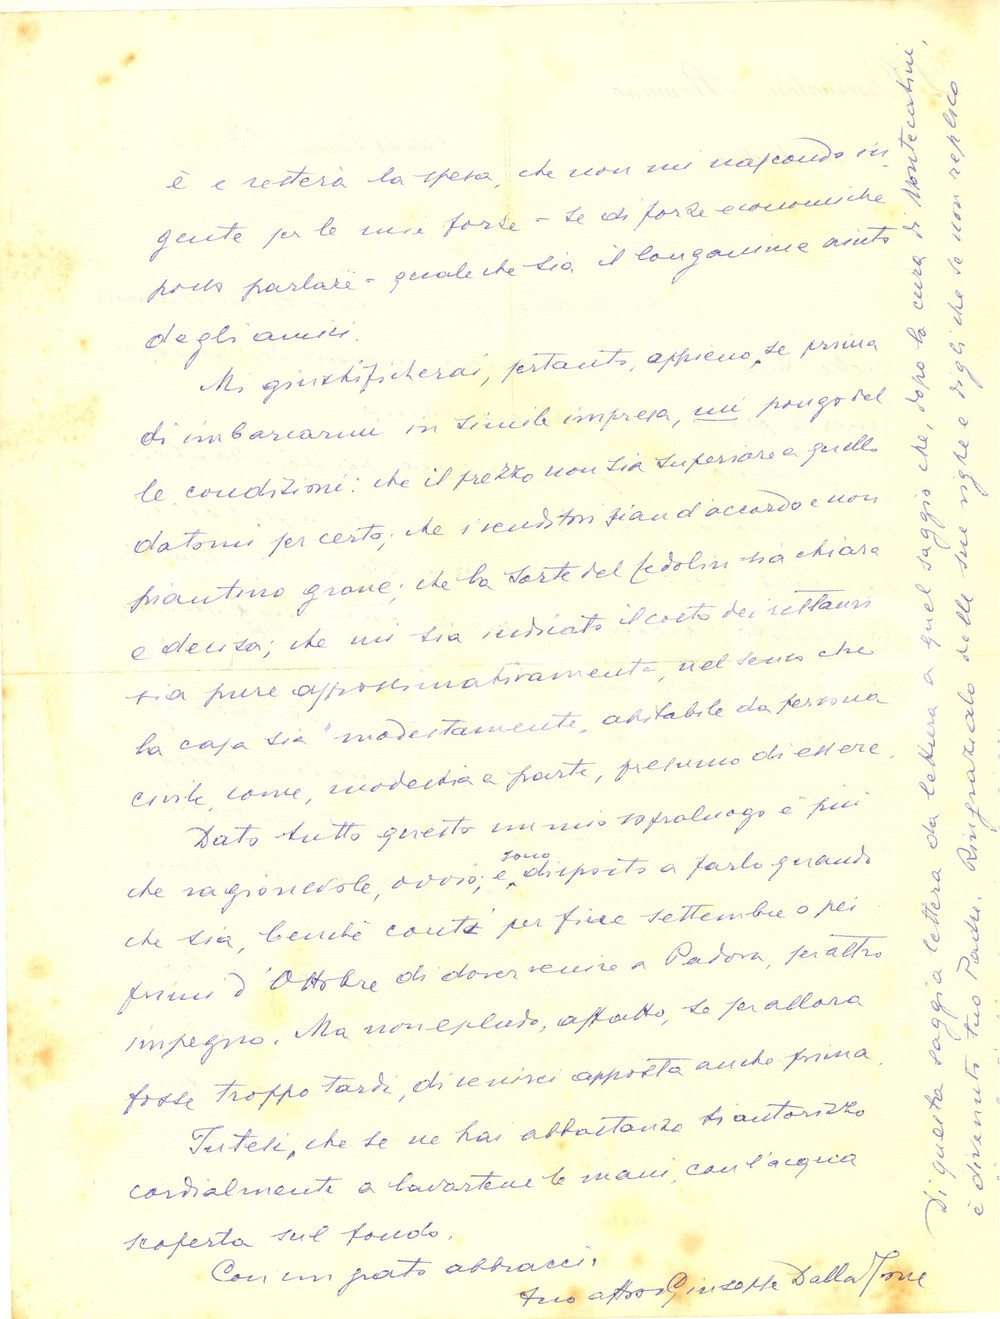 è e resterà la spesa, che non mi nascondo in-
gente per le mie forze - se di forze economiche
posso parlare - quale che sia il longanime aiuto
degli amici.
Mi giustificherai, pertanto, appieno, se prima
di imbarcarmi in simile impresa, mi pongo del
le condizioni: che il prezzo non sia superiore a quello
datomi per certo; che i venditori sian d'accordo e non
piantino grane; che la sorte del fedolin sia chiara
e decisa; che mi sia indicato il costo dei restauri
sia pure approssimativamente, nel senso che
la casa sia "modestamente" abitabile da persona
civile, come, modestia a parte, presumo di essere.
Dato tutto questo un mio sopraluogo è più
che ragionevole, ovvio; e sono disposto a farlo quando
che sia, benchè conti per fine settembre o pei
primi d'Ottobre di dover venire a Padova, per altro
impegno. Ma non escludo, affatto, se per allora
fosse troppo tardi, di venirci apposta anche prima.
Intesi, che se ne hai abbastanza ti autorizzo
cordialmente a lavartene le mani, con l'acqua
scoperta sul fondo.
Con un grato abbraccio
tuo aff.mo Giuseppe Dalla Torre
Di questa saggia lettera da lettura a quel saggio che, dopo la cura di Montecatini,
è divenuto tuo Padre. Ringrazialo delle sue righe e digli che se non replico